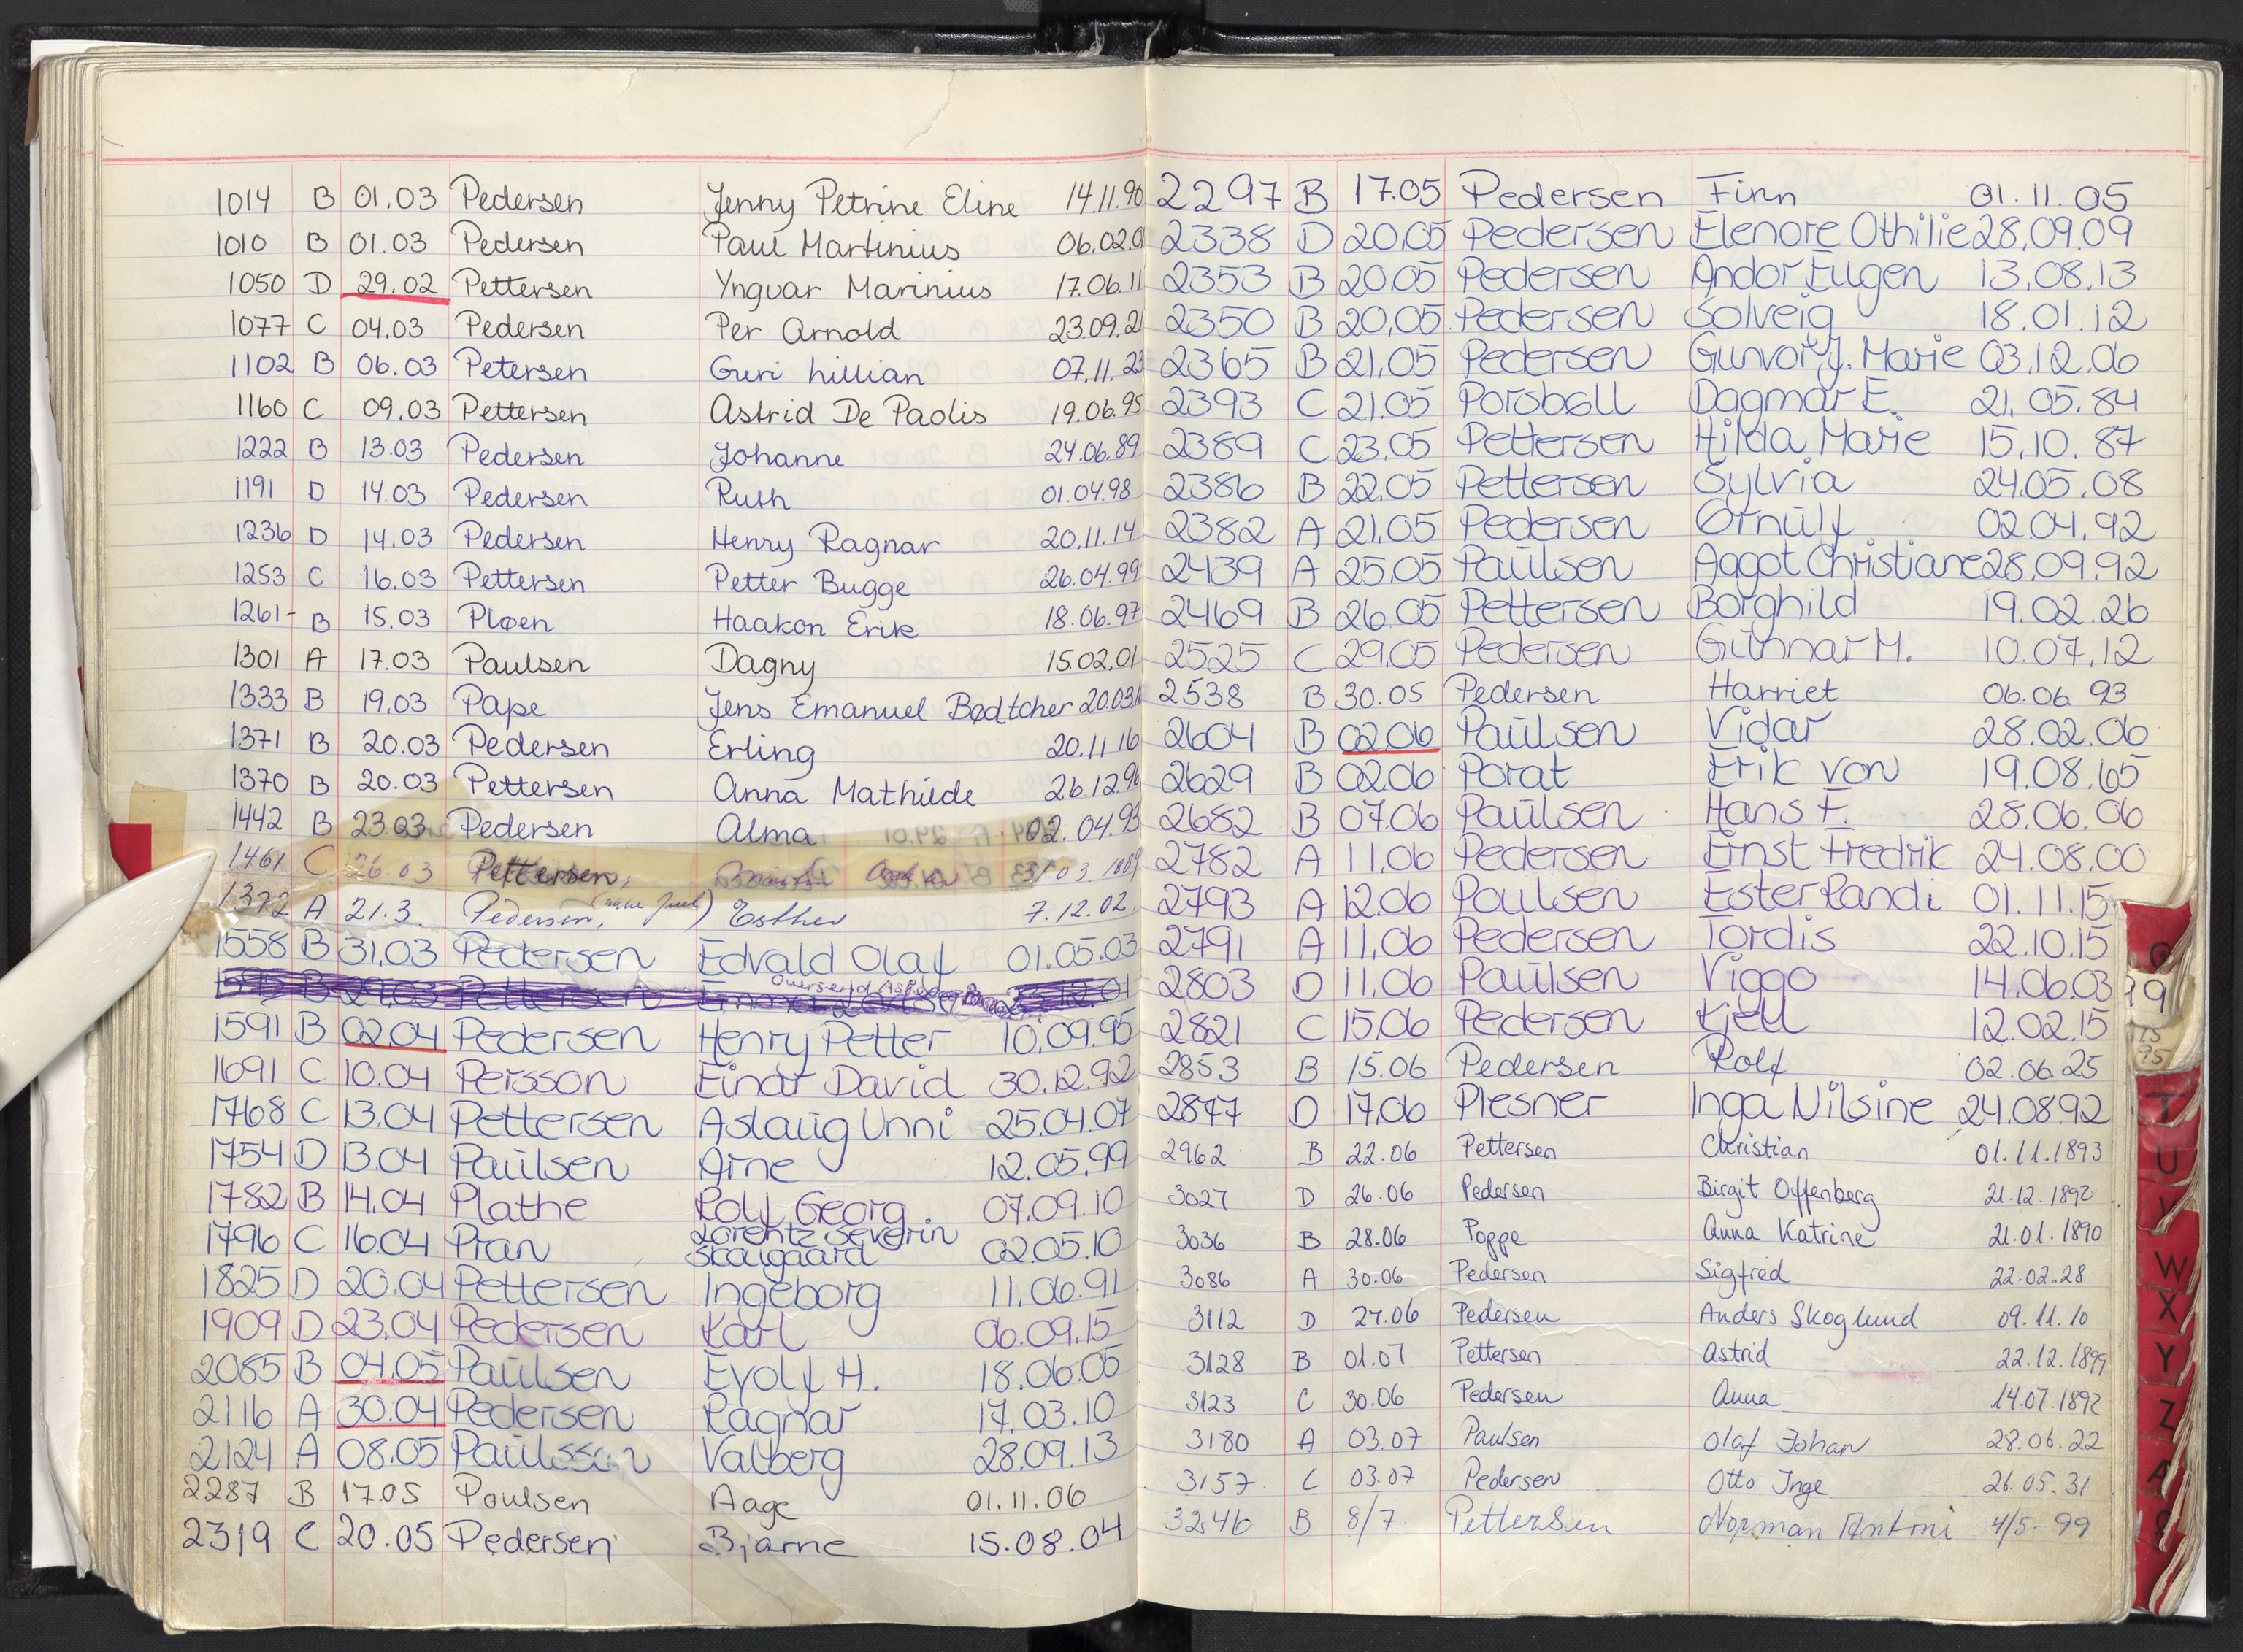 1014 B 01.03 Pedersen Jenny Petrine Eline 14.11.90
1010 B 01.03 Pedersen Paul Martinius 06.02.0
1050 D 29.02 Pettersen Yngvar Marinius 17.06.11
1077 C 04.03 Pedersen Per Arnold 23.09.21
1102 B 06.03 Petersen Guri Lillian 07.11.23
1160 C 09.03 Pettersen Astrid De Paolis 19.06.95
1222 B 13.03 Pedersen Johanne 24.06.89
1191 D 14.03 Pedersen Ruth 01.04.98
1236 D 14.03 Pedersen Henry Ragnar 20.11.14
1253 C 16.03 Pettersen Petter Bugge 26.04.99
1261- B 15.03 Pløen Haakon Erik 18.06.97
1301 A 17.03 Paulsen Dagny 15.02.01
1333 B 19.03 Pape Jens Emanuel Bødtcher 20.03.
1371 B 20.03 Pedersen Erling 20.11.16
1370 B 20.03 Pettersen Anna Mathilde 26.12.96
1442 B 23.03 Pedersen Alma 02.04.93
1461 C 26.03 Pettersen, 03 188
1372 A 21.3. Pedersen, Esther 7.12.02.
1558 B 31.03 Pedersen Edvald Olaf 01.05.03
1591 B 02.04 Pedersen Henry Petter 10.09.95
1691 C 10.04 Persson Einar David 30.12.92
1768 C 13.04 Pettersen Aslaug Unni 25.04.07
1754 D 13.04 Paulsen Arne 12.05.99
1782 B 14.04 Plathe Rolf Georg 07.09.10
1796 C 16.04 Pran Lorentz Severin Skaugaard 02.05.10
1825 D 20.04 Pettersen Ingeborg 11.06.91
1909 D 23.04 Pedersen Karl 06.09.15
2085 B 04.05 Paulsen Eyolf H. 18.06.05
2116 A 30.04 Pedersen Ragnar 17.03.10
2124 A 08.05 Paulsson Valberg 28.09.13
2287 B 17.05 Poulsen Aage 01.11.06
2319 C 20.05 Pedersen Bjarne 15.08.04
2297 B 17.05 Pedersen Finn 01.11.05
2338 D 20.05 Pedersen Elenore Othilie 28.09.09
2353 B 20.05 Pedersen Andor Eugen 13.08.13
2350 B 20.05 Pedersen Solveig 18.01.12
2365 B 21.05 Pedersen Gunvor J. Marie 03.12.06
2393 C 21.05 Porsbøll Dagmar E. 21.05.84
2389 C 23.05 Pettersen Hilda Marie 15.10.87
2386 B 22.05 Pettersen Sylvia 24.05.08
2382 A 21.05 Pedersen Ørnulf 02.04.92
2439 A 25.05 Paulsen Aagot Christiane 28.09.92
2469 B 26.05 Pettersen Borghild 19.02.26
2525 C 29.05 Pedersen Gunnar M. 10.07.12
2538 B 30.05 Pedersen Harriet 06.06 93
2604 B 02.06 Paulsen Vidar 28.02.06
2629 B 02.06 Porat Erik von 19.08.65
2682 B 07.06 Paulsen Hans F. 28.06.06
2782 A 11.06 Pedersen Ernst Fredrik 24.08.00
2793 A 12.06 Poulsen Ester Randi 01.11.15
2791 A 11.06 Pedersen Tordis 22.10.15
2803 D 11.06 Paulsen Viggo 14.06.03
2821 C 15.06 Pedersen Kjell 12.02.15
2853 B 15.06 Pedersen Rolf 02.06.25
2877 D 17.06 Plesner Inga Nilsine 24.08.92
2962 B 22.06 Pettersen Christian 01.11.1893
3027 D 26.06 Pedersen Birgit Offenberg 21.12.1892
3036 B 28.06 Poppe Anna Katrine 21.01.1890
3086 A 30.06 Pedersen Sigfred 22.02.28
3112 D 27.06 Pedersen Anders Skoglund 09.11.10
3128 B 01.07 Pettersen Astrid 22.12.1899
3123 C 30.06 Pedersen Anna 14.07.1892
3180 A 03.07 Paulsen Olaf Johan 28.06.22
3157 C 03.07 Pedersen Otto Inge 26.05.31
3246 B 8/7 Pettersen Norman Antoni 4/5-99
T
U
W
X
Y
Z